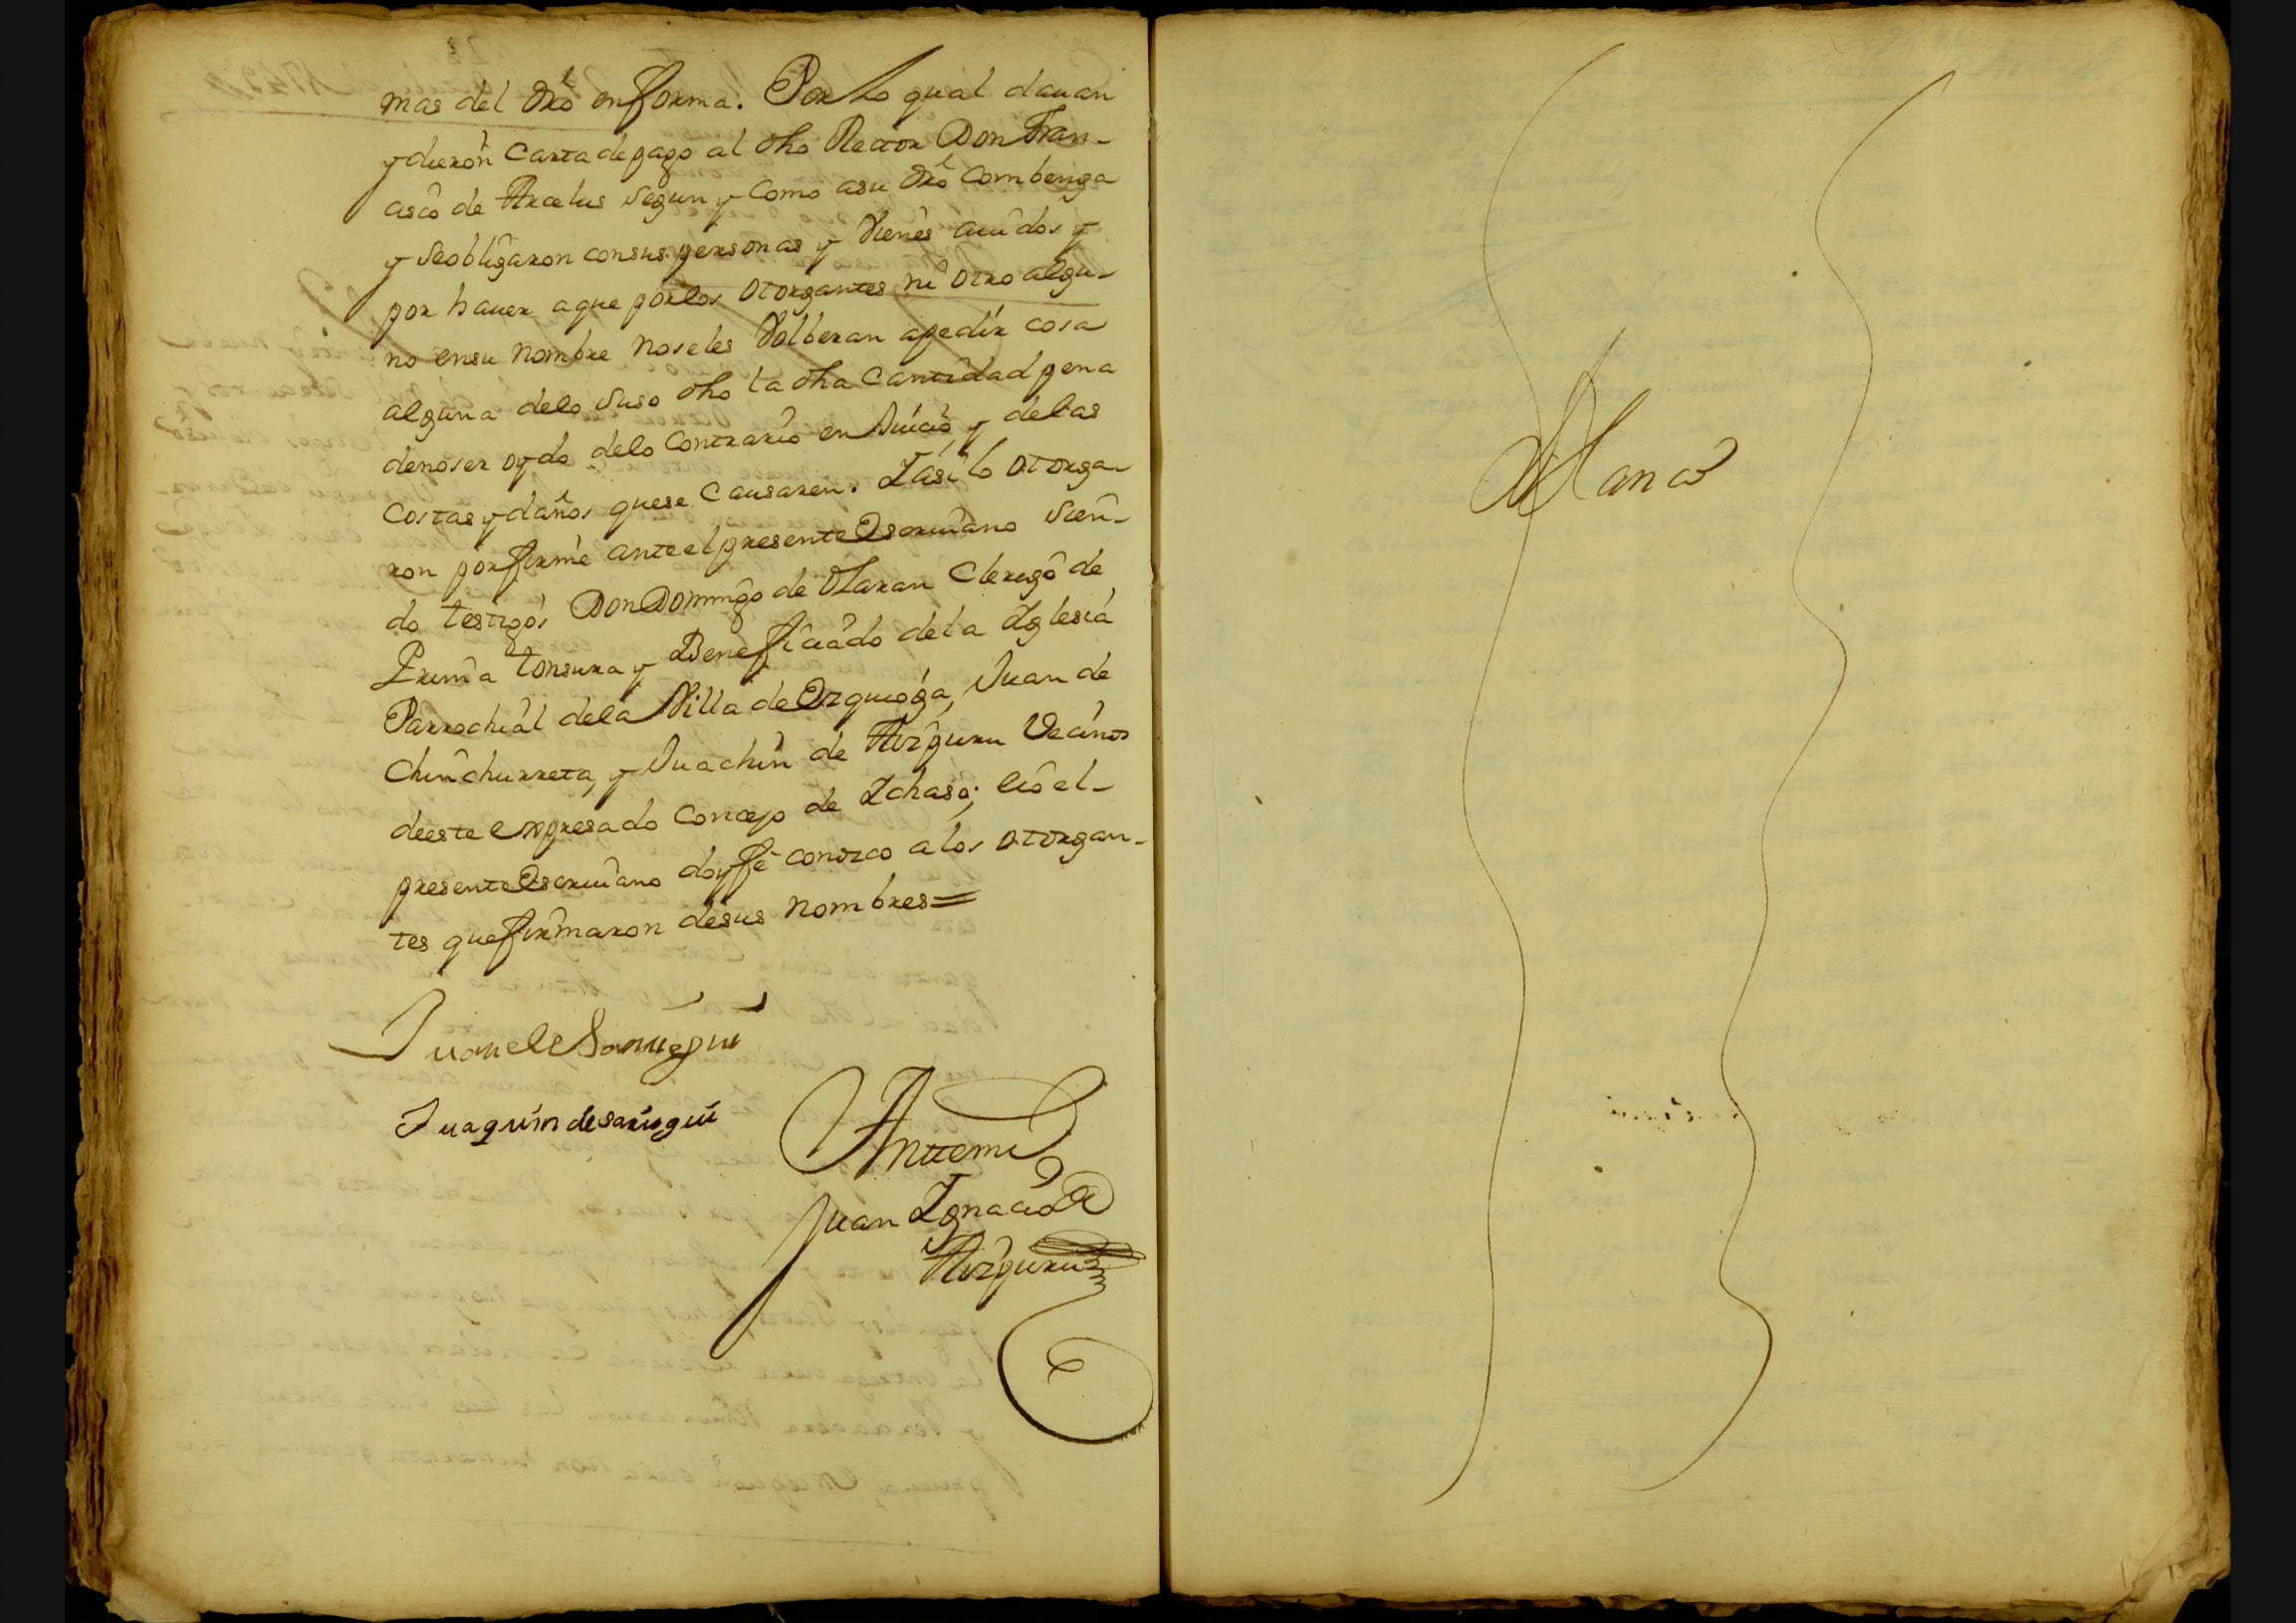 mas del dró en forma. Por Lo qual dauan
y dieron Carta de pago al dho Rector Don Fran-
cisco de Arcelus segun y Como asu dró Combenga
y seobligaron consus personas y vienes auidos y
por hauer aque porlos otorgantes ni otro algu-
no ensu nombre noseles Volberan apedir cosa
alguna delo suso dho la dha Cantidad pena
denoser oydo delo Contrario en Juicio, y delas
Costas y daños quese Causaren. Yasi lo otorga-
ron por firme ante el presente Escriuano sien-
do testigos Don Domingo de Olaran Clerigo de
Prima tonsura y Beneficiado dela Yglesia
Parrochial dela Villa de Ezquioga, Juan de
Chinchurreta, y Juachin de Aizguru Vecinos
deeste expresado Concejo de Ychaso; eio el-
presente Escriuano doy fe conozco alos otorgan-
tes que firmaron desus nombres=
Juan de Sarriegui
Juaquin de sariegui
Antemi
Juan Ygnacio de
Aizguru
Blanco